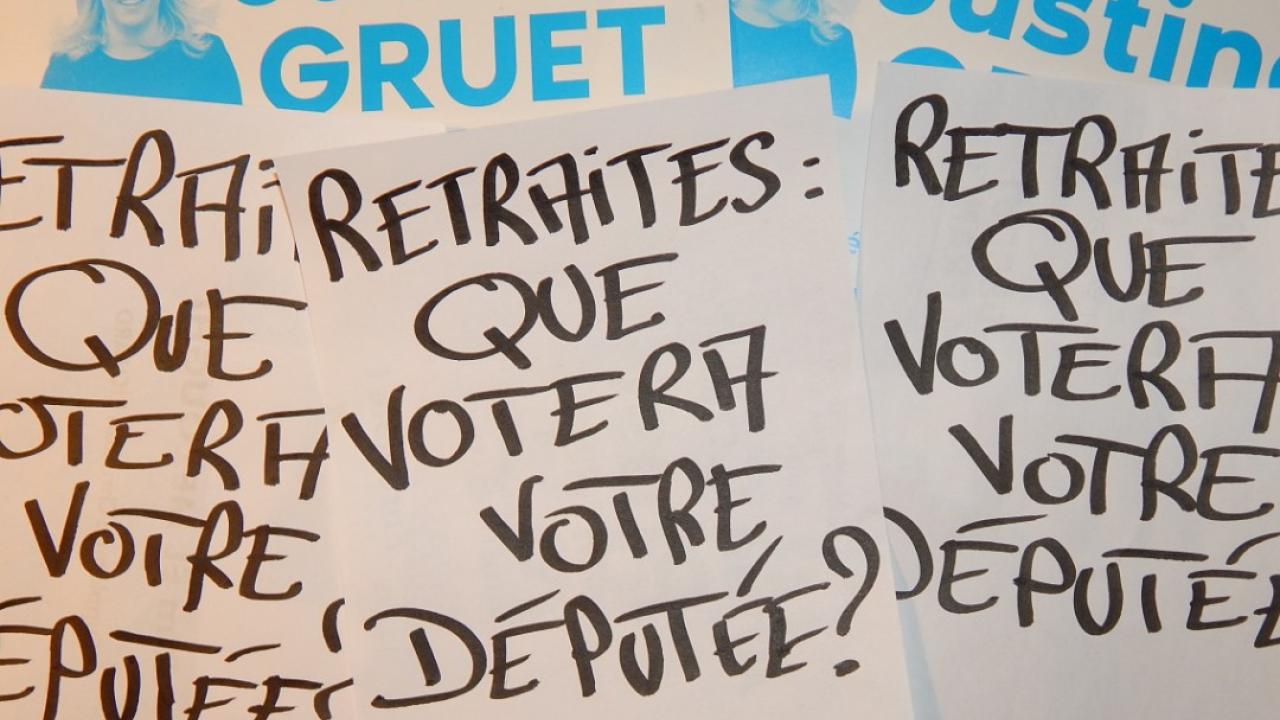 GRUET
Justin
ETRAi
QUE
OTERA
VOTRE
ÉPUTÉE?
RETRAITES:
QUE
VOTERA
VOTRE
DÉPUTÉE?
RETRAITE
QUE
VOTERA
VOTRE
DÉPUTÉE